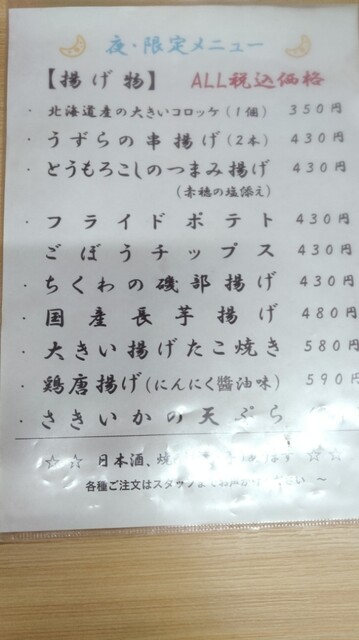 夜・限定メニュー
【揚げ物】 ALL税込価格
・北海道産の大きいコロッケ(1個) 350円
・うずらの串揚げ(2本) 430円
・とうもろこしのつまみ揚げ 430円
(赤穂の塩添え)
・フライドポテト 430円
ごぼうチップス 430円
・ちくわの磯部揚げ 430円
・国産長芋揚げ 480円
・大きい揚げたこ焼き 580円
・鶏唐揚げ(にんにく醤油味) 590円
・さきいかの天ぷら
☆ ☆ 日本酒、焼 ☆ ☆
各種ご注文はスタッフまでお声がけ ~